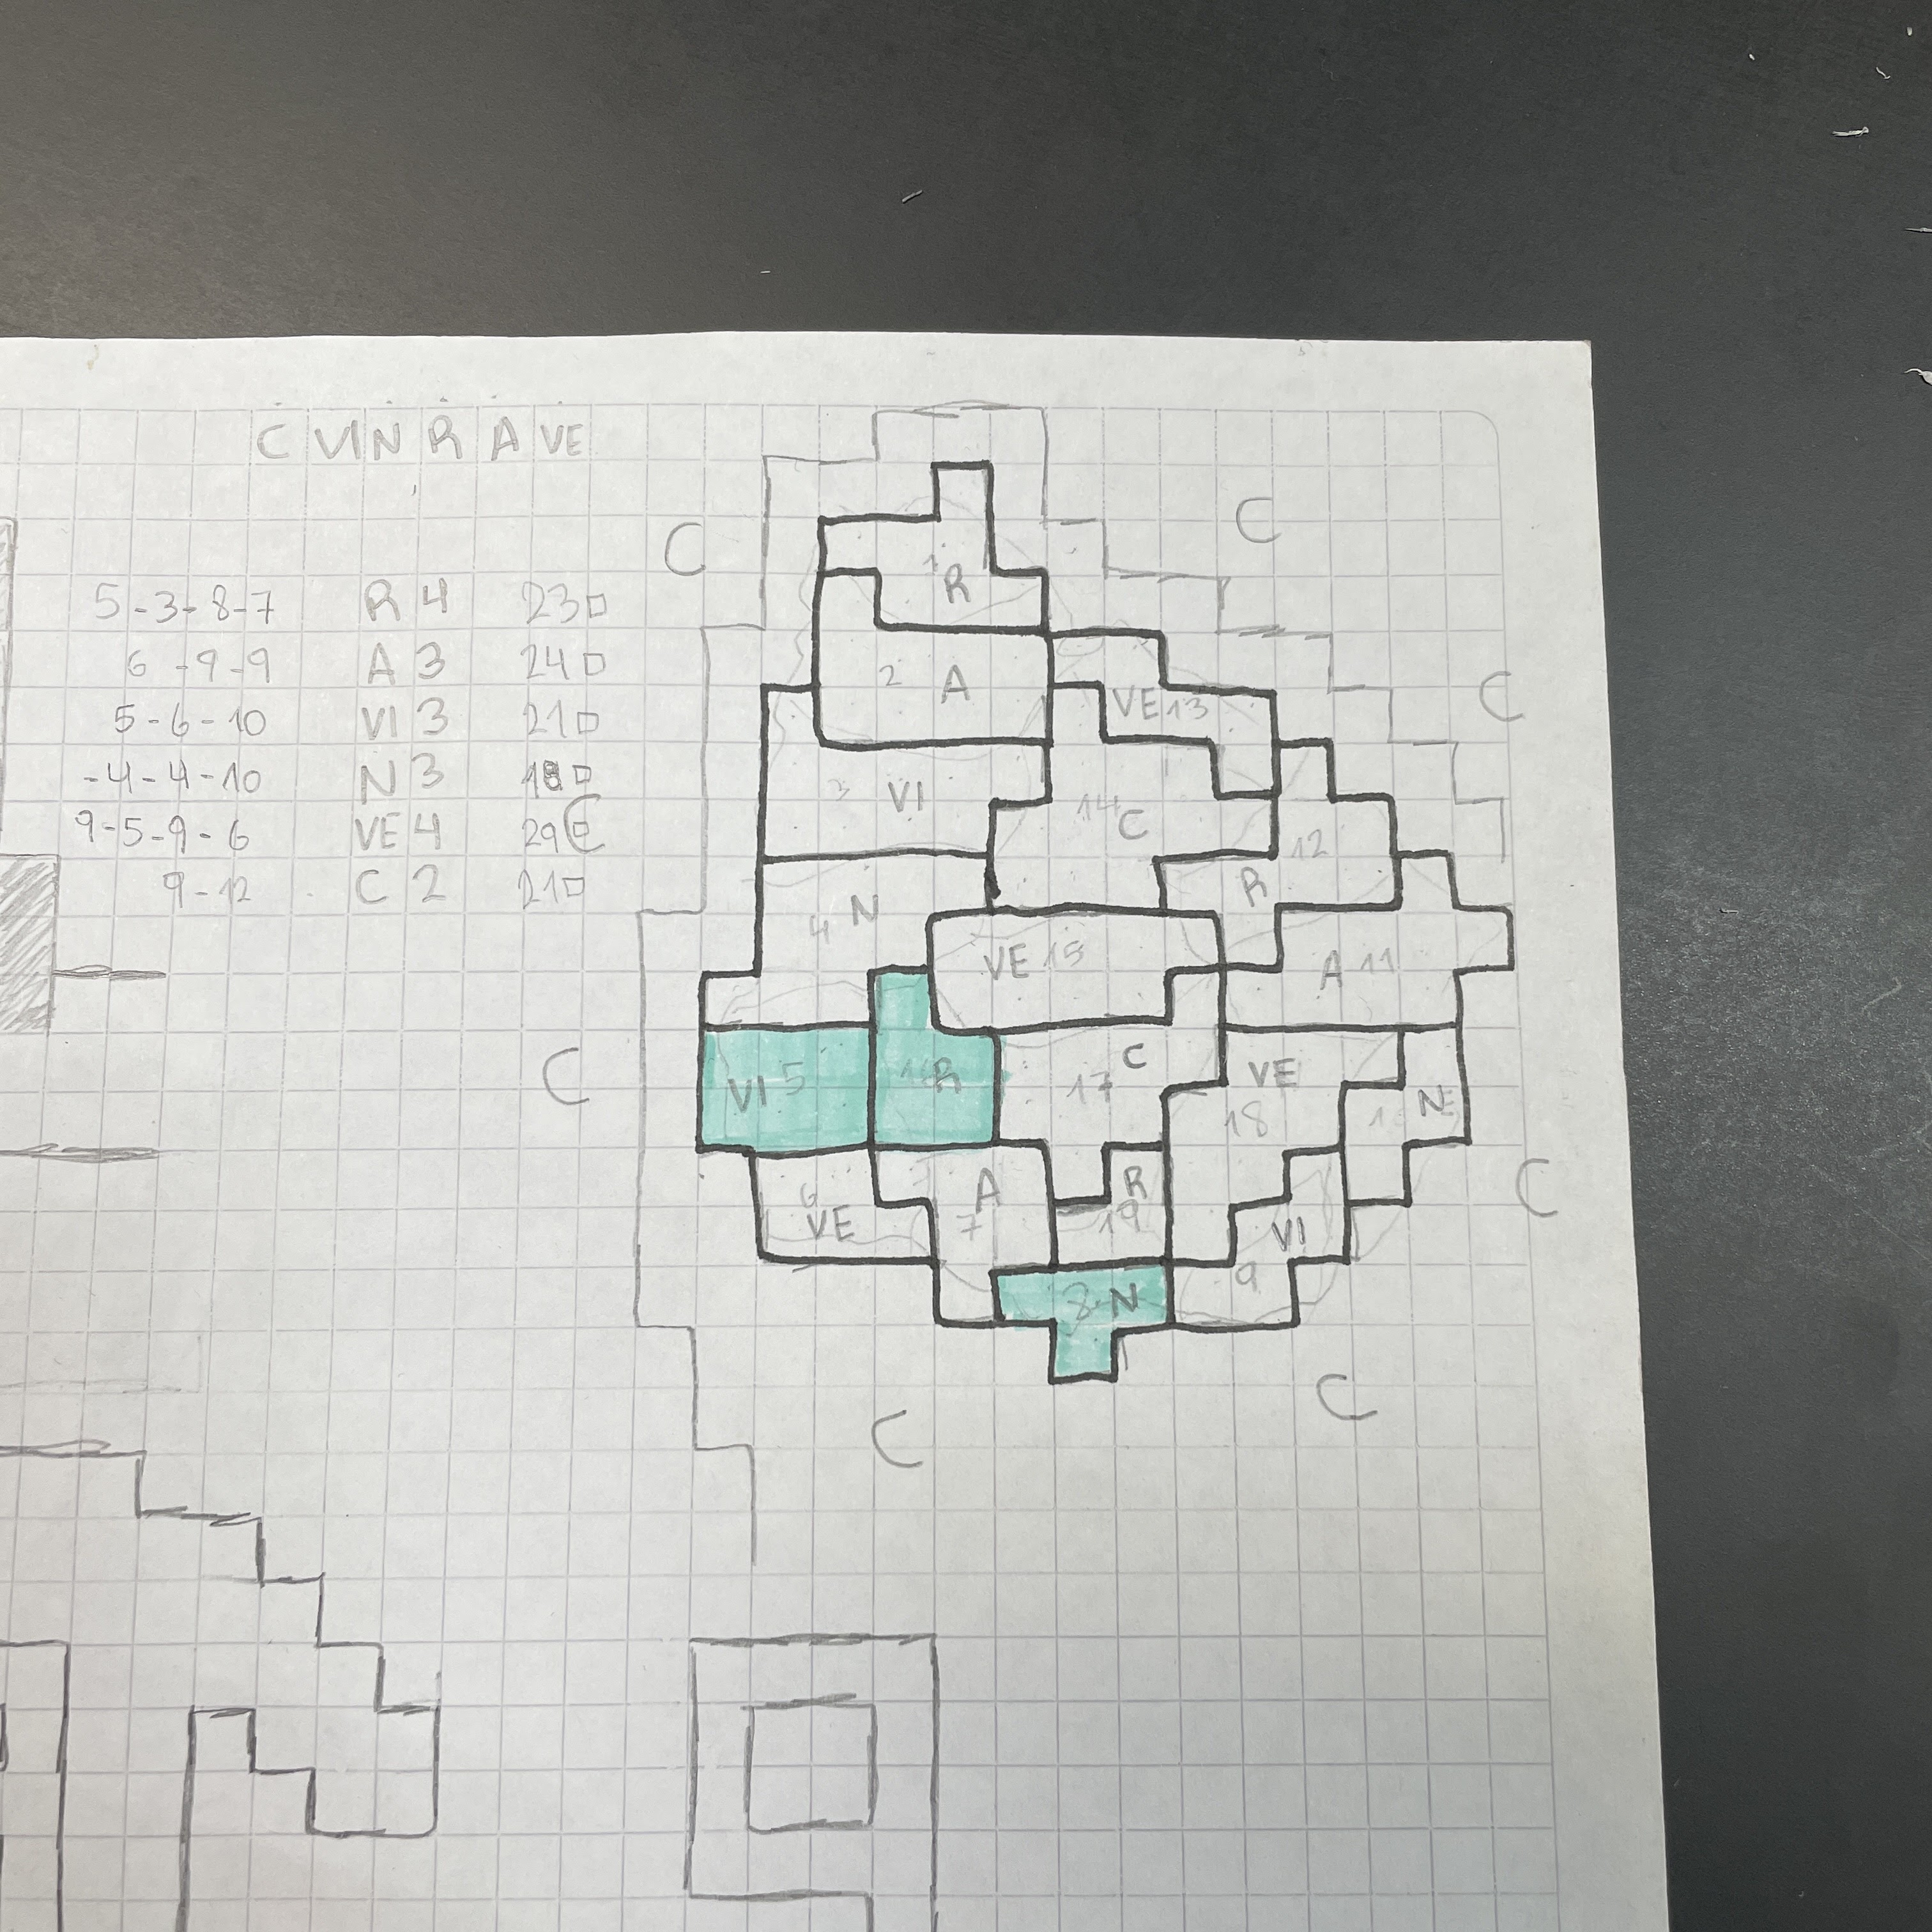 C VI N R A VE
5-3-8-7 R 4 23□
6-9-9 A 3 24□
5-6-10 VI 3 21□
-4-4-10 N 3 18□
9-5-9-6 VE 4 29□
9-12 C 2 21□
C
C
1
R
2 A
C
VE 13
3 VI
14
C
12
R
4 N
VE 15
A 11
C
VI 5
R
17 C
VE
18
N
C
6
VE
A
7
R
19
VI
9
8 N
C
C